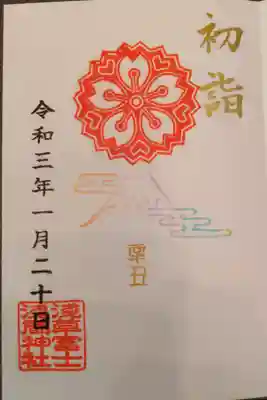 初詣
辛丑
令和三年一月二十日
淺草富士
浅間神社